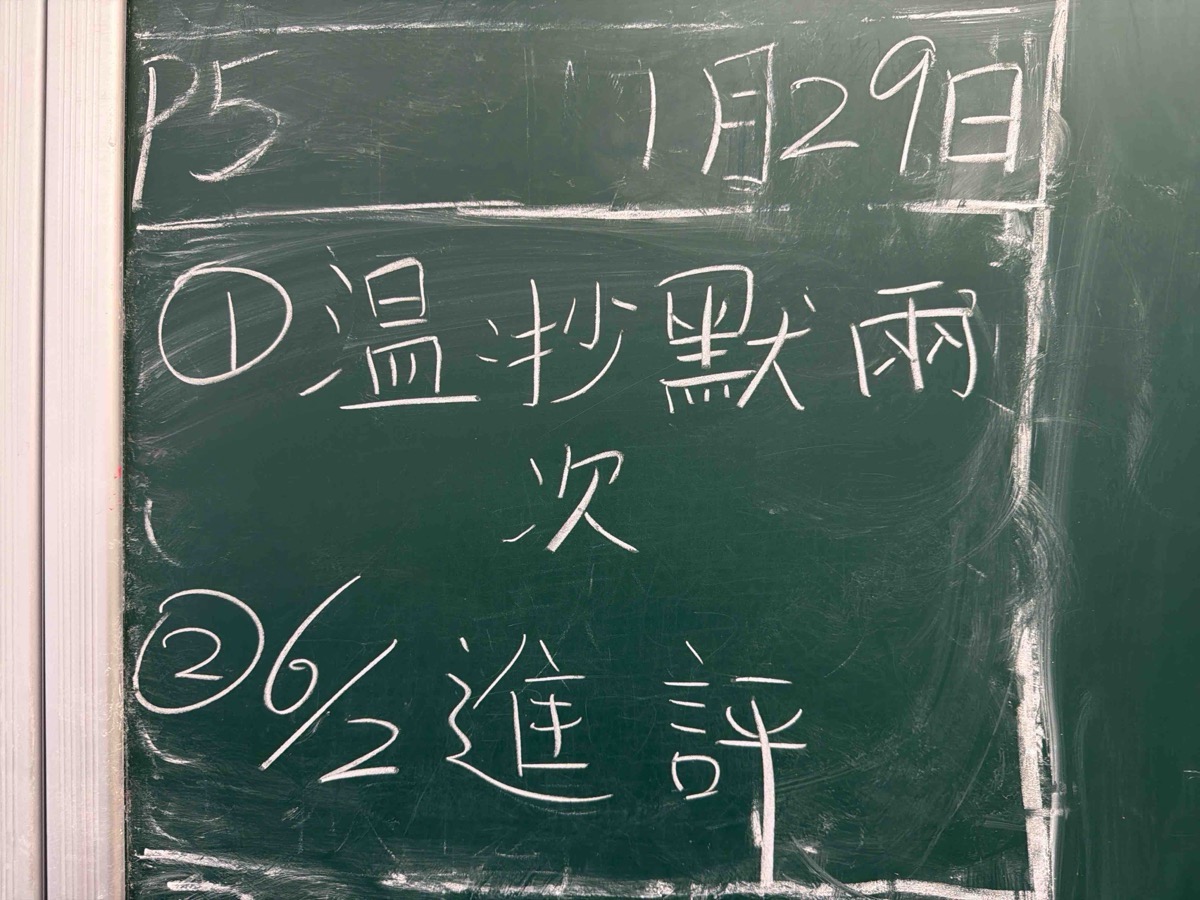 P5 1月29日
①温抄默兩
次
②6/2進評